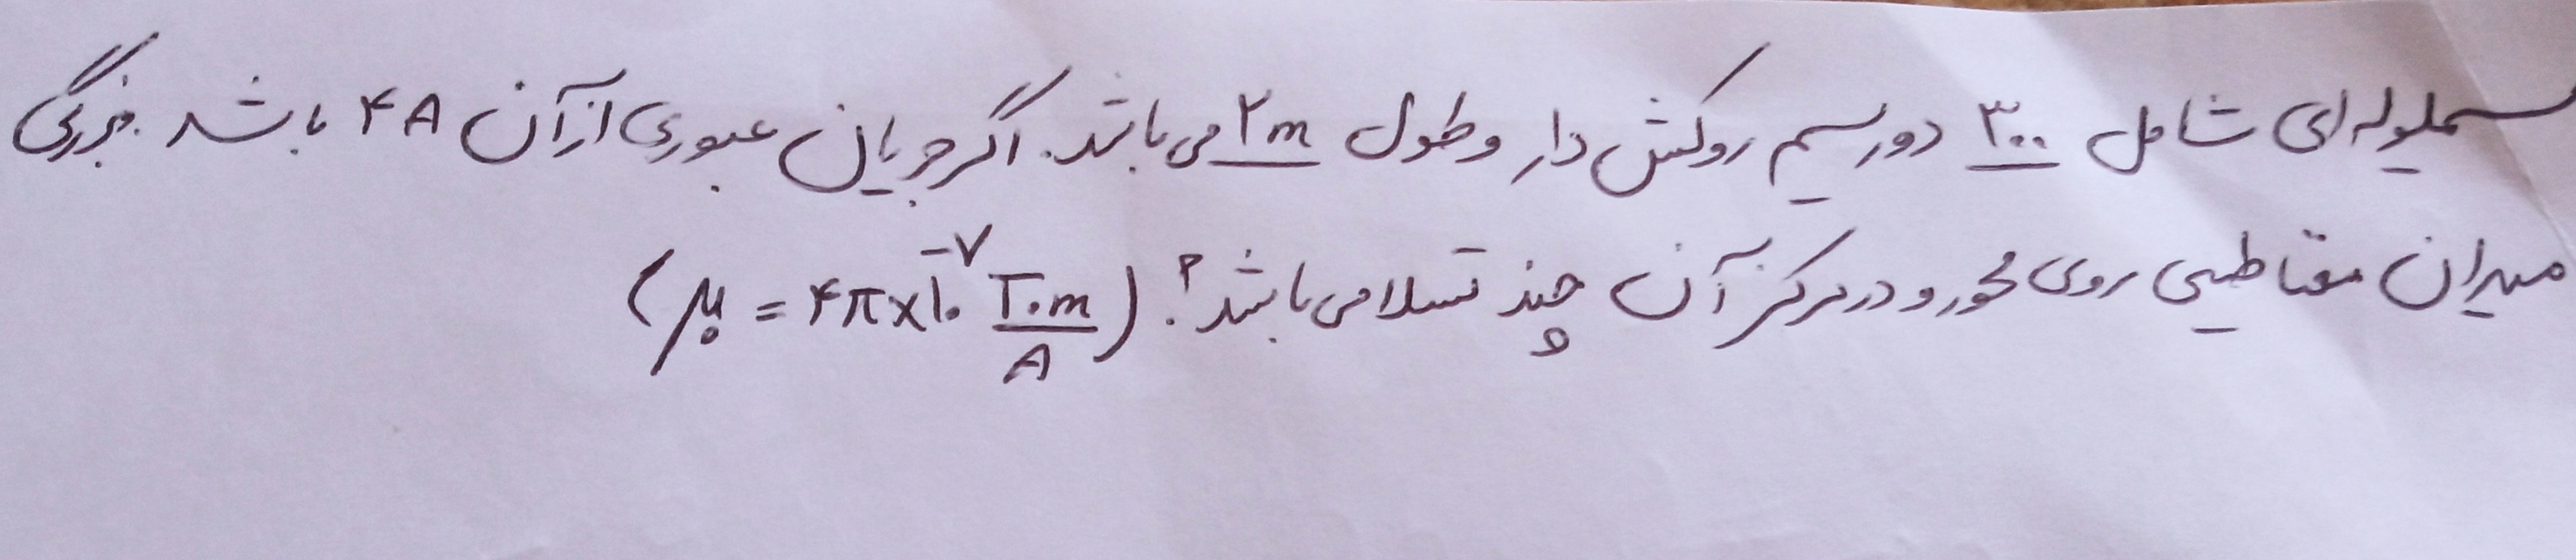 سیملوله ای شامل ۳۰۰ دور سیم روکش دار و طول ۲m می باشد. اگر جریان عبوری از آن ۴A باشد. بزرگی
میدان مغناطیسی روی محور و در مرکز آن چند تسلا می باشد؟ (μ₀ = ۴π×۱۰⁻⁷ T.m/A)